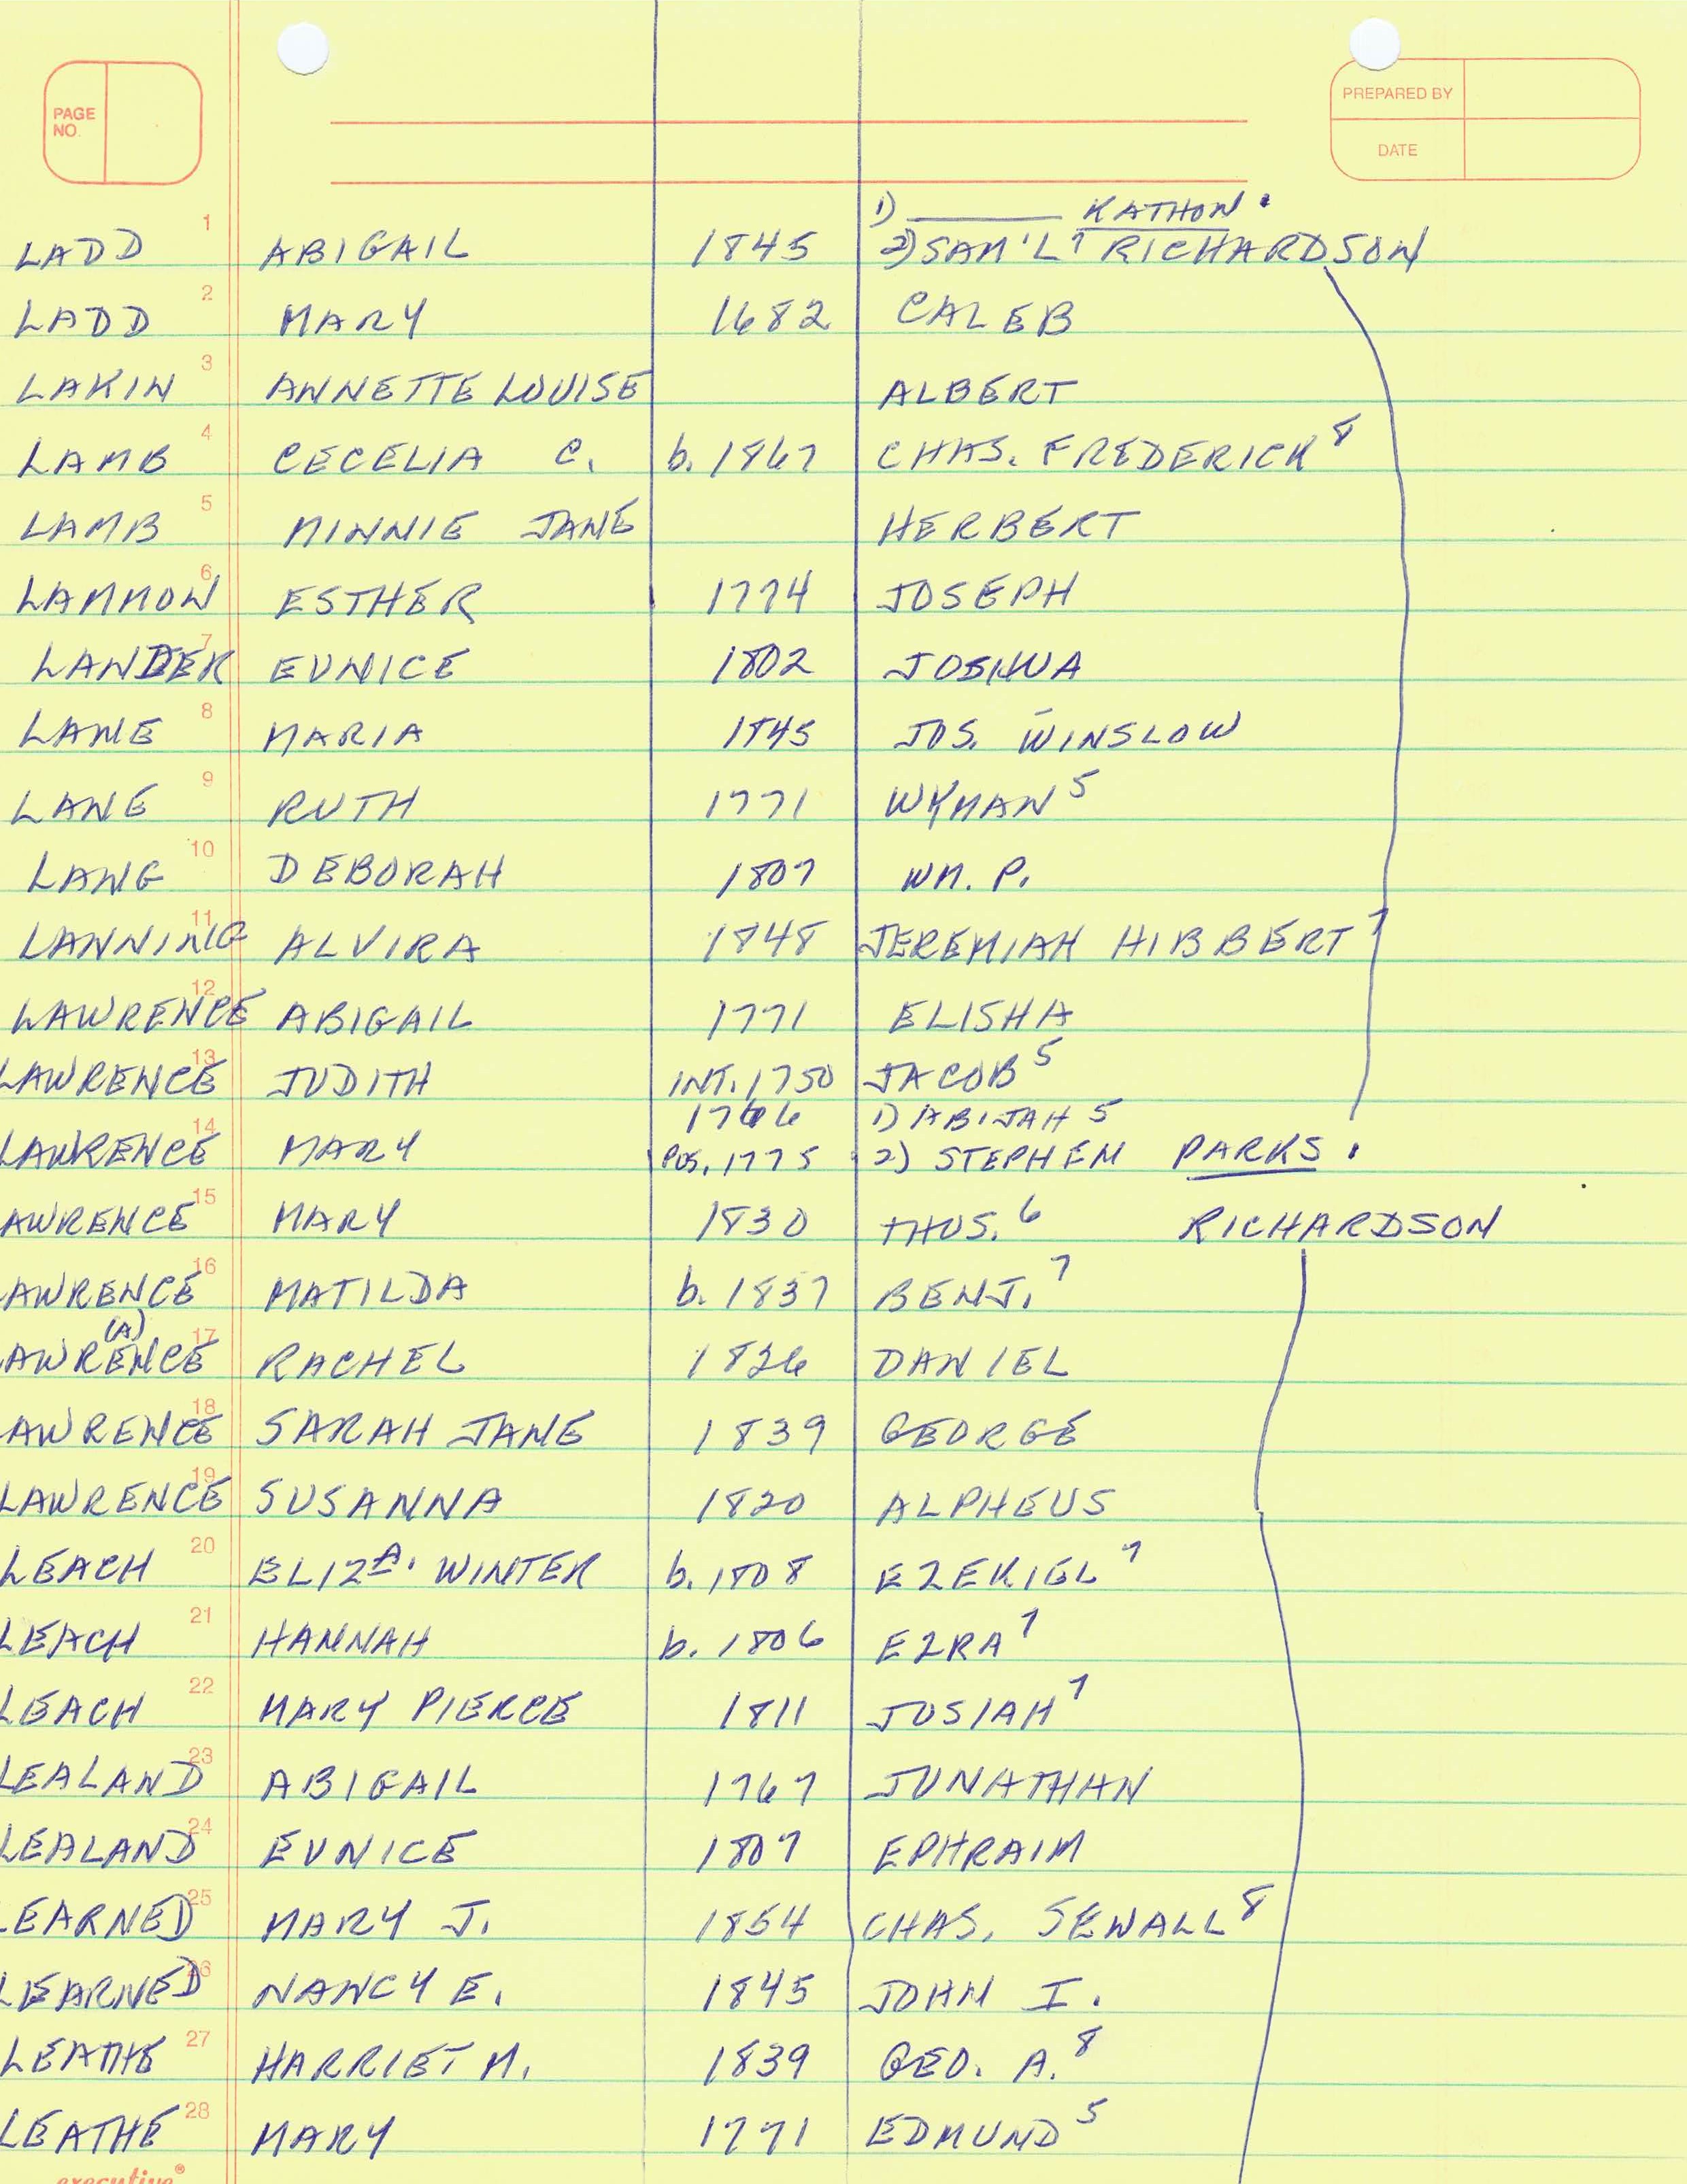 PAGE NO.
PREPARED BY
DATE
1) ______ KATHON.
1 LADD ABIGAIL 1845 2) SAM'L 7 RICHARDSON
2 LADD MARY 1682 CALEB
3 LAKIN ANNETTE LOUISE ALBERT
4 LAMB CECELIA C. b. 1867 CHAS. FREDERICK 8
5 LAMB MINNIE JANE HERBERT
6 LAMMON ESTHER 1774 JOSEPH
7 LANDER EUNICE 1802 JOSHUA
8 LANE MARIA 1845 JOS. WINSLOW
9 LANE RUTH 1771 WYMAN 5
10 LANG DEBORAH 1807 WM. P.
11 LANNING ALVIRA 1848 JEREMIAH HIBBERT 7
12 LAWRENCE ABIGAIL 1771 ELISHA
13 LAWRENCE JUDITH INT. 1750 JACOB 5
1766 1) ABIJAH 5
14 LAWRENCE MARY POS. 1775 2) STEPHEN PARKS.
15 AWRENCE MARY 1830 THOS. 6 RICHARDSON
16 AWRENCE MATILDA b. 1837 BENJ. 7
(A)
17 AWRENCE RACHEL 1826 DANIEL
18 AWRENCE SARAH JANE 1839 GEORGE
19 LAWRENCE SUSANNA 1820 ALPHEUS
20 LEACH ELIZA. WINTER b. 1808 EZEKIEL 7
21 LEACH HANNAH b. 1806 EZRA 7
22 LEACH MARY PIERCE 1811 JOSIAH 7
23 LEALAND ABIGAIL 1767 JONATHAN
24 LEALAND EUNICE 1807 EPHRAIM
25 LEARNED MARY J. 1854 CHAS. SEWALL 8
26 LEARNED NANCY E. 1845 JOHN I.
27 LEATHE HARRIET M. 1839 GEO. A. 8
28 LEATHE MARY 1771 EDMUND 5
executive®